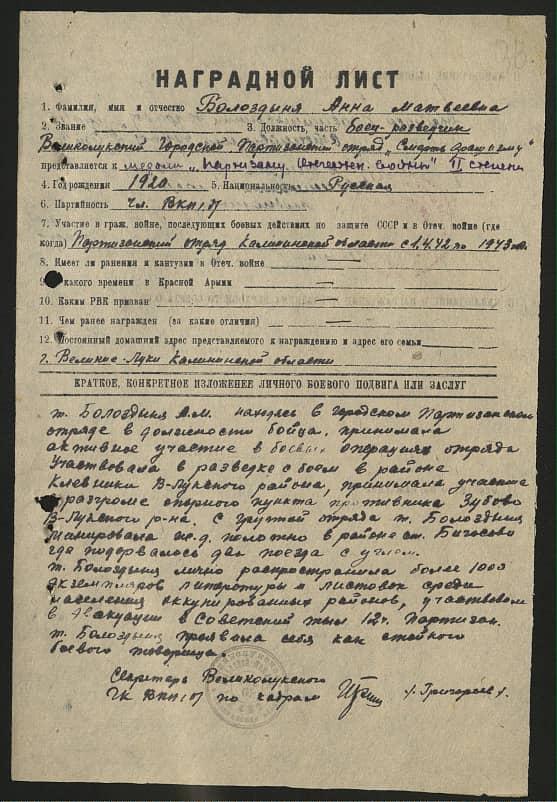 НАГРАДНОЙ ЛИСТ
1. Фамилия, имя и отчество Болоздыня Анна Матвеевна
2. Звание 3. Должность, часть Боец-разведчик
Великолукский Городской Партизанский отряд "Смерть врагу"
представляется к медали "Партизану Отечествен. войны" II степени
4. Год рождения 1920 5. Национальность Русская
6. Партийность Чл. ВКП/б/
7. Участие в граж. войне, последующих боевых действиях по защите СССР и в Отеч. войне (где
когда) Партизанский отряд Калининской области с 1.4.42 по 1943
8. Имеет ли ранения и контузии в Отеч. войне
9. С какого времени в Красной Армии
10. Каким РВК призван
11. Чем ранее награжден (за какие отличия)
12. Постоянный домашний адрес представляемого к награждению и адрес его семьи
г. Великие-Луки Калининской области
КРАТКОЕ, КОНКРЕТНОЕ ИЗЛОЖЕНИЕ ЛИЧНОГО БОЕВОГО ПОДВИГА ИЛИ ЗАСЛУГ
т. Болоздыня А.М. находясь в городском Партизанском
отряде в должности бойца, принимала
активное участие в боевых операциях отряда
Участвовала в разведке с боем в районе
В-Лукского района, принимала участие
в разгроме опорного пункта противника Зубово
В-Лукского р-на. С группой отряда т. Болоздыня
минировала ж.д. полотно в районе ст.
где подорвалось два поезда с углем.
т. Болоздыня лично распространила более 1000
экземпляров литературы и листовок среди
населения оккупированных районов, участвовала
в эвакуации в Советский тыл 12 ч. Партизан.
т. Болоздыня проявила себя как стойкого
боевого товарища.
Секретарь Великолукского
ГК ВКП/б/ по кадрам /Григорьев/